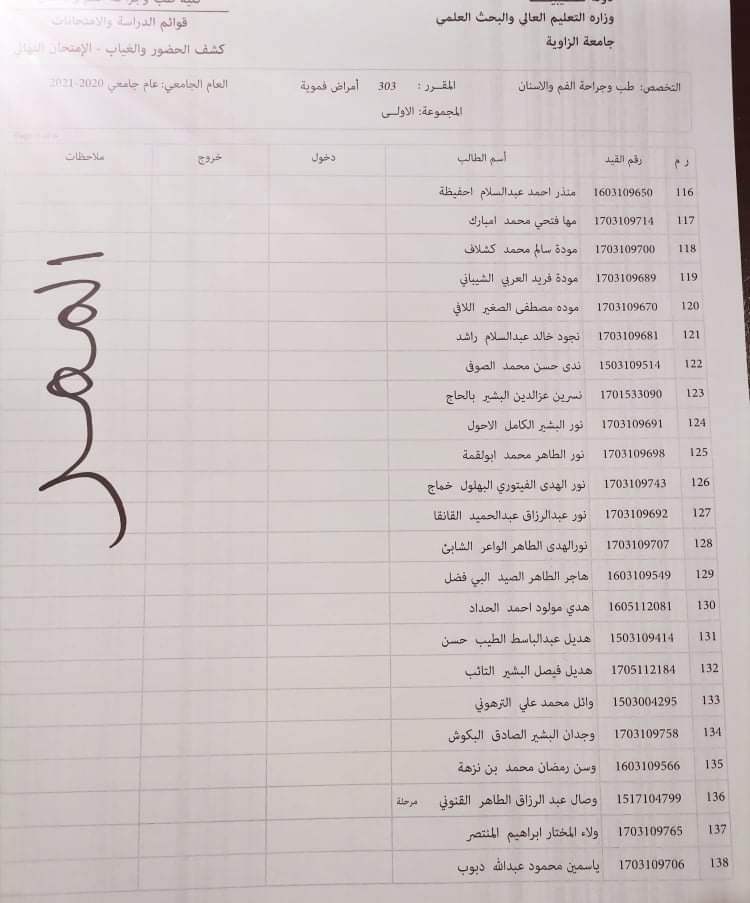 وزاره التعليم العالي والبحث العلمي
جامعة الزاوية
قوائم الدراسة والامتحانات
كشف الحضور والغياب - الإمتحان
التخصص: طب وجراحة الفم والاسنان المقـرر : 303 أمراض فموية العام الجامعي: عام جامعي 2020-2021
المجموعة: الاولـى
ر م رقم القيد أسم الطالب دخول خروج ملاحظات
116 1603109650 منذر احمد عبدالسلام احفيظة
117 1703109714 مها فتحي محمد امبارك
118 1703109700 مودة سالم محمد كشلاف
119 1703109689 مودة فريد العربي الشيباني
120 1703109670 موده مصطفى الصغير اللافي
121 1703109681 نجود خالد عبدالسلام راشد
122 1503109514 ندى حسن محمد الصوفى
123 1701533090 نسرين عزالدين البشير بالحاج
124 1703109691 نور البشير الكامل الاحول
125 1703109698 نور الطاهر محمد ابولقمة
126 1703109743 نور الهدى الفيتوري البهلول خماج
127 1703109692 نور عبدالرزاق عبدالحميد القانقا
128 1703109707 نورالهدى الطاهر الواعر الشابئ
129 1603109549 هاجر الطاهر الصيد البي فضل
130 1605112081 هدي مولود احمد الحداد
131 1503109414 هديل عبدالباسط الطيب حسن
132 1705112184 هديل فيصل البشير التائب
133 1503004295 وائل محمد علي الترهوني
134 1703109758 وجدان البشير الصادق البكوش
135 1603109566 وسن رمضان محمد بن نزهة
136 1517104799 وصال عبد الرزاق الطاهر القنوني مرحلة
137 1703109765 ولاء المختار ابراهيم المنتصر
138 1703109706 ياسمين محمود عبدالله دبوب